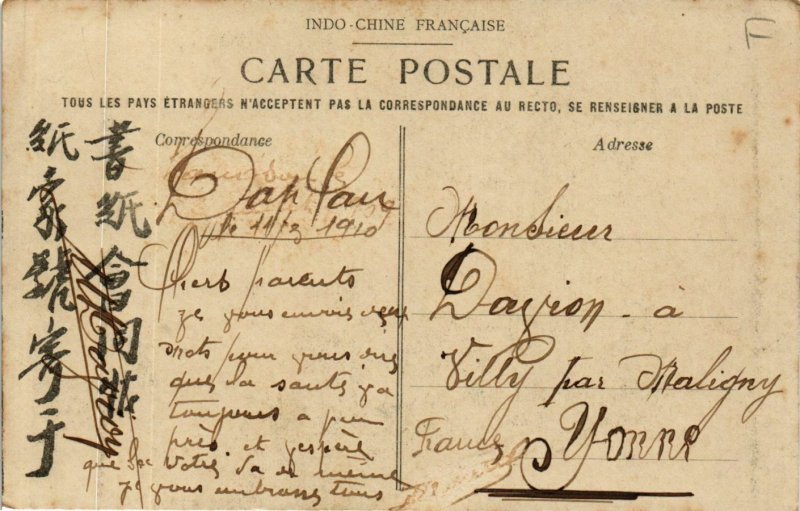 INDO-CHINE FRANÇAISE
CARTE POSTALE
TOUS LES PAYS ÉTRANGERS N'ACCEPTENT PAS LA CORRESPONDANCE AU RECTO, SE RENSEIGNER A LA POSTE
Correspondance
Dap Cau
le 11/3 1910
Chers parents
je vous envois deux
mots pour vous dire
que la santé va
toujours a peu
près et j'espère
que la votre va de même
je vous embrasse tous
Adresse
Monsieur
Dagron à
Villy par Maligny
France Yonne
書紙會同
紙 號寄于